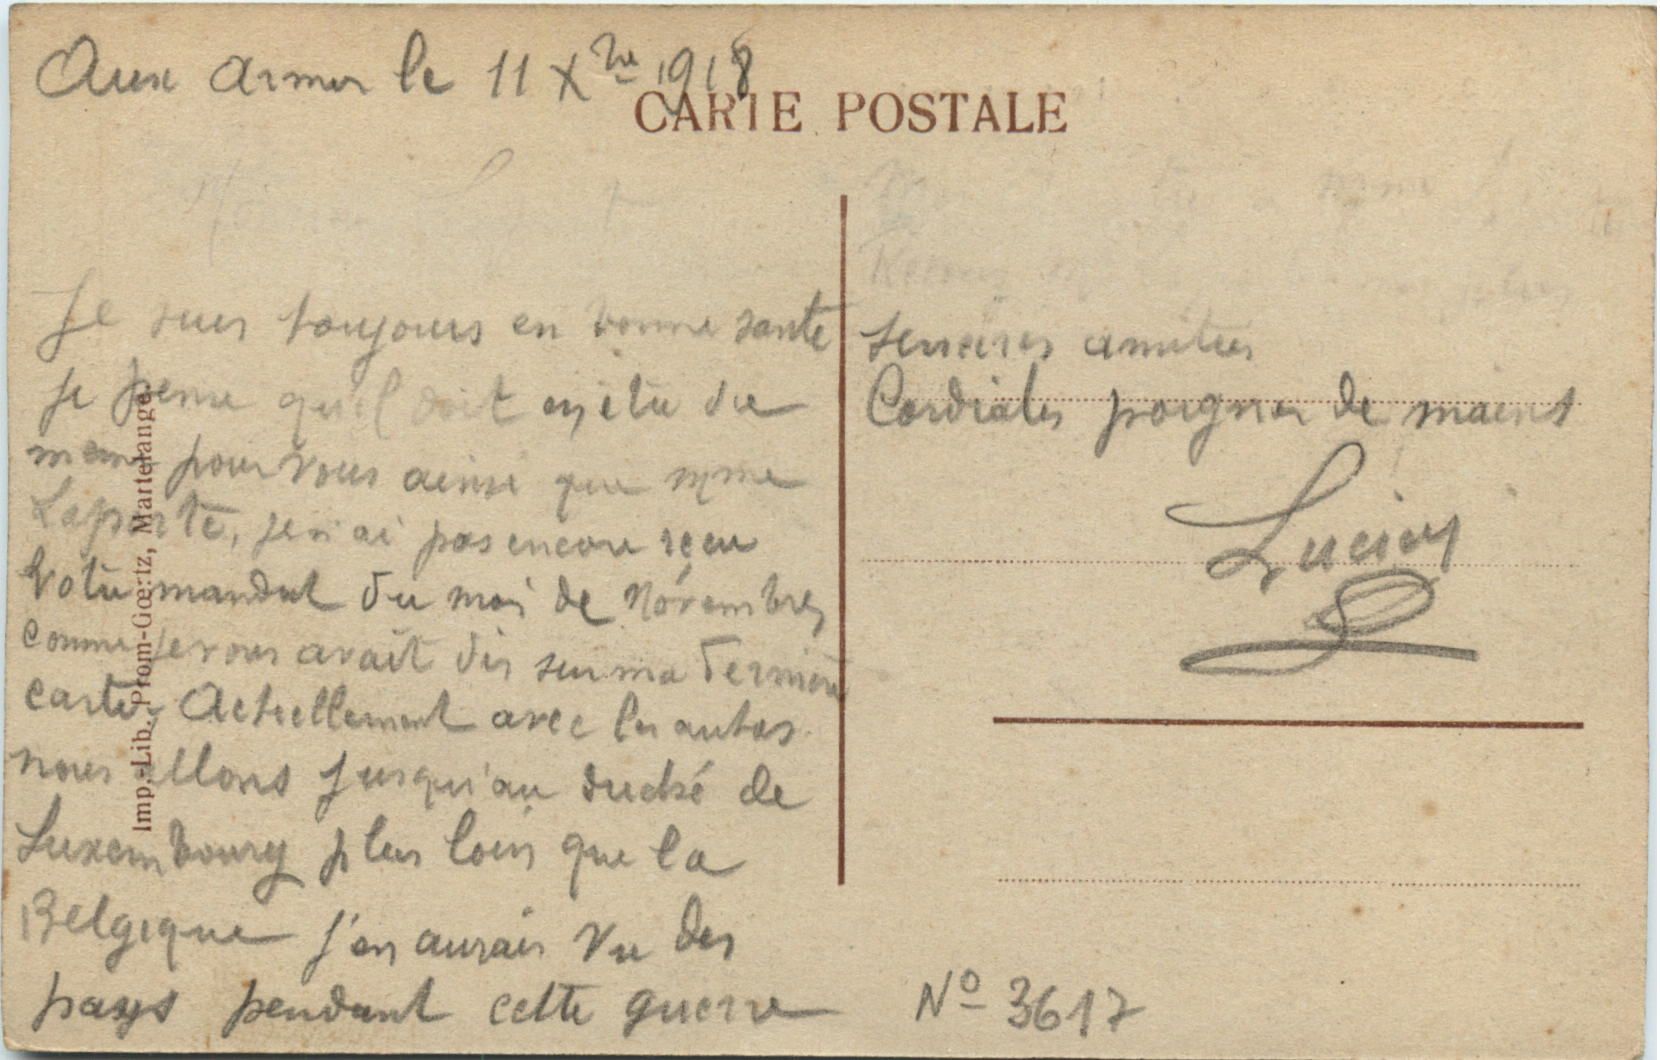 Aux armes le 11 Xbre 1918
CARTE POSTALE
Je suis toujours en bonne santé
je pense qu'il doit en être de
meme pour vous ainsi que Mme
Laporte, je n'ai pas encore reçu
Votre mandat du moi de Novembre,
comme je vous avait dis sur ma derniere
carte, Actuellement avec les autos
nous allons jusqu'au duché de
Luxembourg plus loin que la
Belgique j'en aurais vu des
pays pendant cette guerre
Imp.-Lib. Prom-Gœrtz, Martelange
Recevez plus
sincères amitiés
Cordiales poignes de mains
Lucien
No 3617